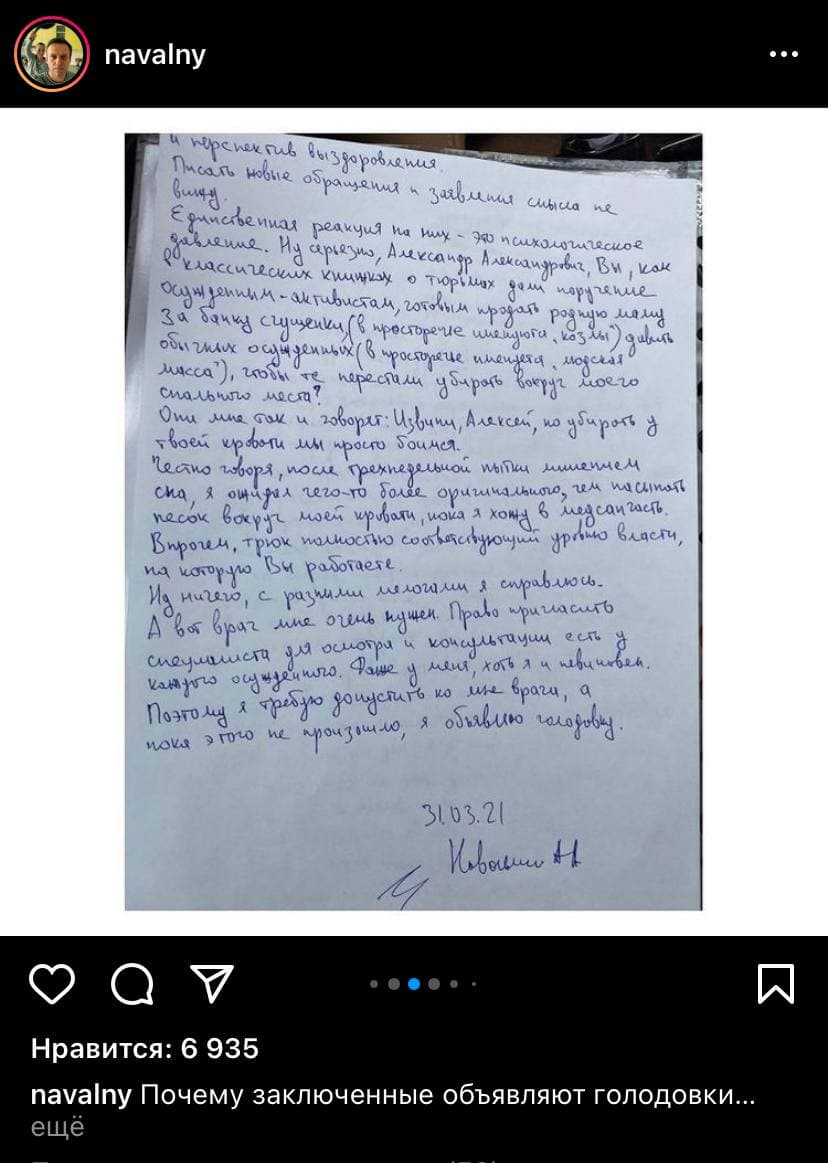 navalny
и перспектив выздоровления.
Писать новые обращения и заявления смысла не
вижу.
Единственная реакция на них - это психологическое
давление. Ну серьезно, Александр Александрович, Вы, как
в классических книжках о тюрьмах дали поручение
осужденным-активистам, готовым продать родную маму
за банку сгущенки, (в просторечие именуются "козлы") давить
обычных осужденных (в просторечие именуется "людская
масса"), чтобы те перестали убирать вокруг моего
спального места?
Они мне так и говорят: Извини, Алексей, но убирать у
твоей кровати мы просто боимся.
Честно говоря, после трехнедельной пытки лишением
сна, я ожидал чего-то более оригинального, чем насыпать
песок вокруг моей кровати, пока я хожу в медсанчасть.
Впрочем, трюк полностью соответствующий уровню власти,
на которую Вы работаете.
Ну ничего, с разными мелочами я справлюсь.
А вот врач мне очень нужен. Право пригласить
специалиста для осмотра и консультации есть у
каждого осужденного. Даже у меня, хоть я и невиновен.
Поэтому я требую допустить ко мне врача, а
пока этого не произошло, я объявляю голодовку.
31.03.21
Навальный А А
Нравится: 6 935
navalny Почему заключенные объявляют голодовки...
ещё